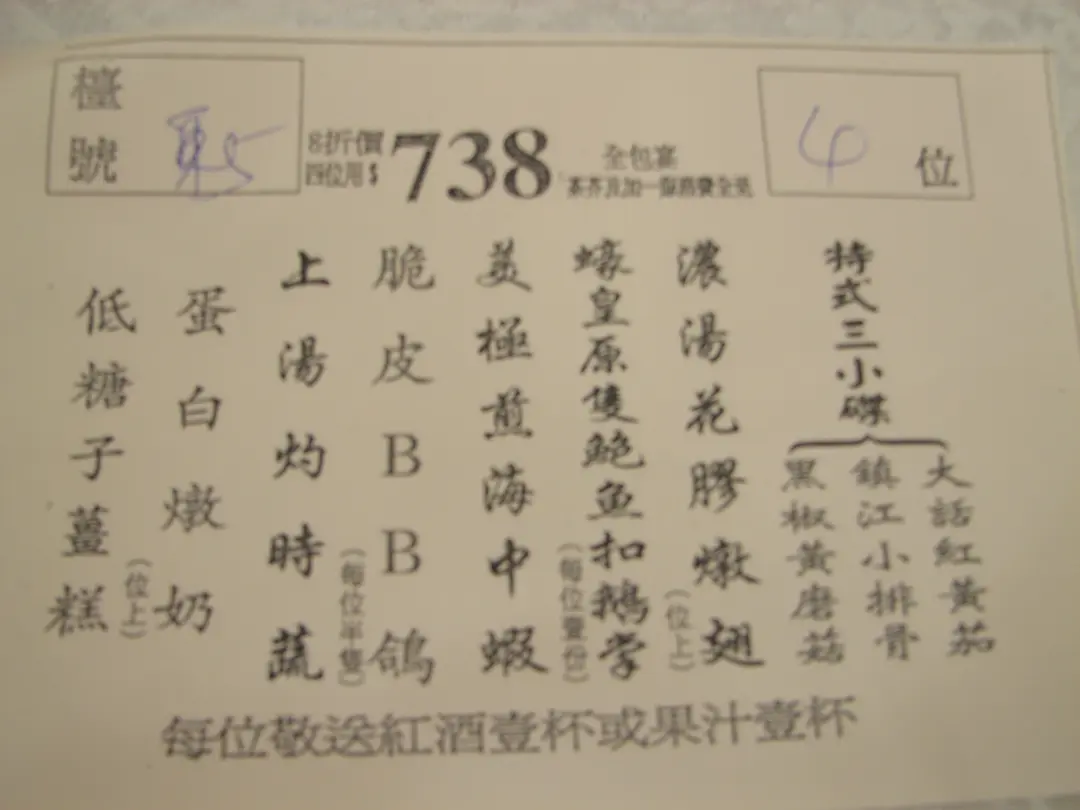 檯號
8折價
四位用$
738
全包宴
茶芥及加一服務費全免
4位
特式三小碟
大話紅黃茄
鎮江小排骨
黑椒黃磨菇
濃湯花膠燉翅
(位上)
蠔皇原隻鮑魚扣鵝掌
(每位壹份)
美極煎海中蝦
脆皮BB鴿
(每位半隻)
上湯灼時蔬
蛋白燉奶
(位上)
低糖子薑糕
每位敬送紅酒壹杯或果汁壹杯